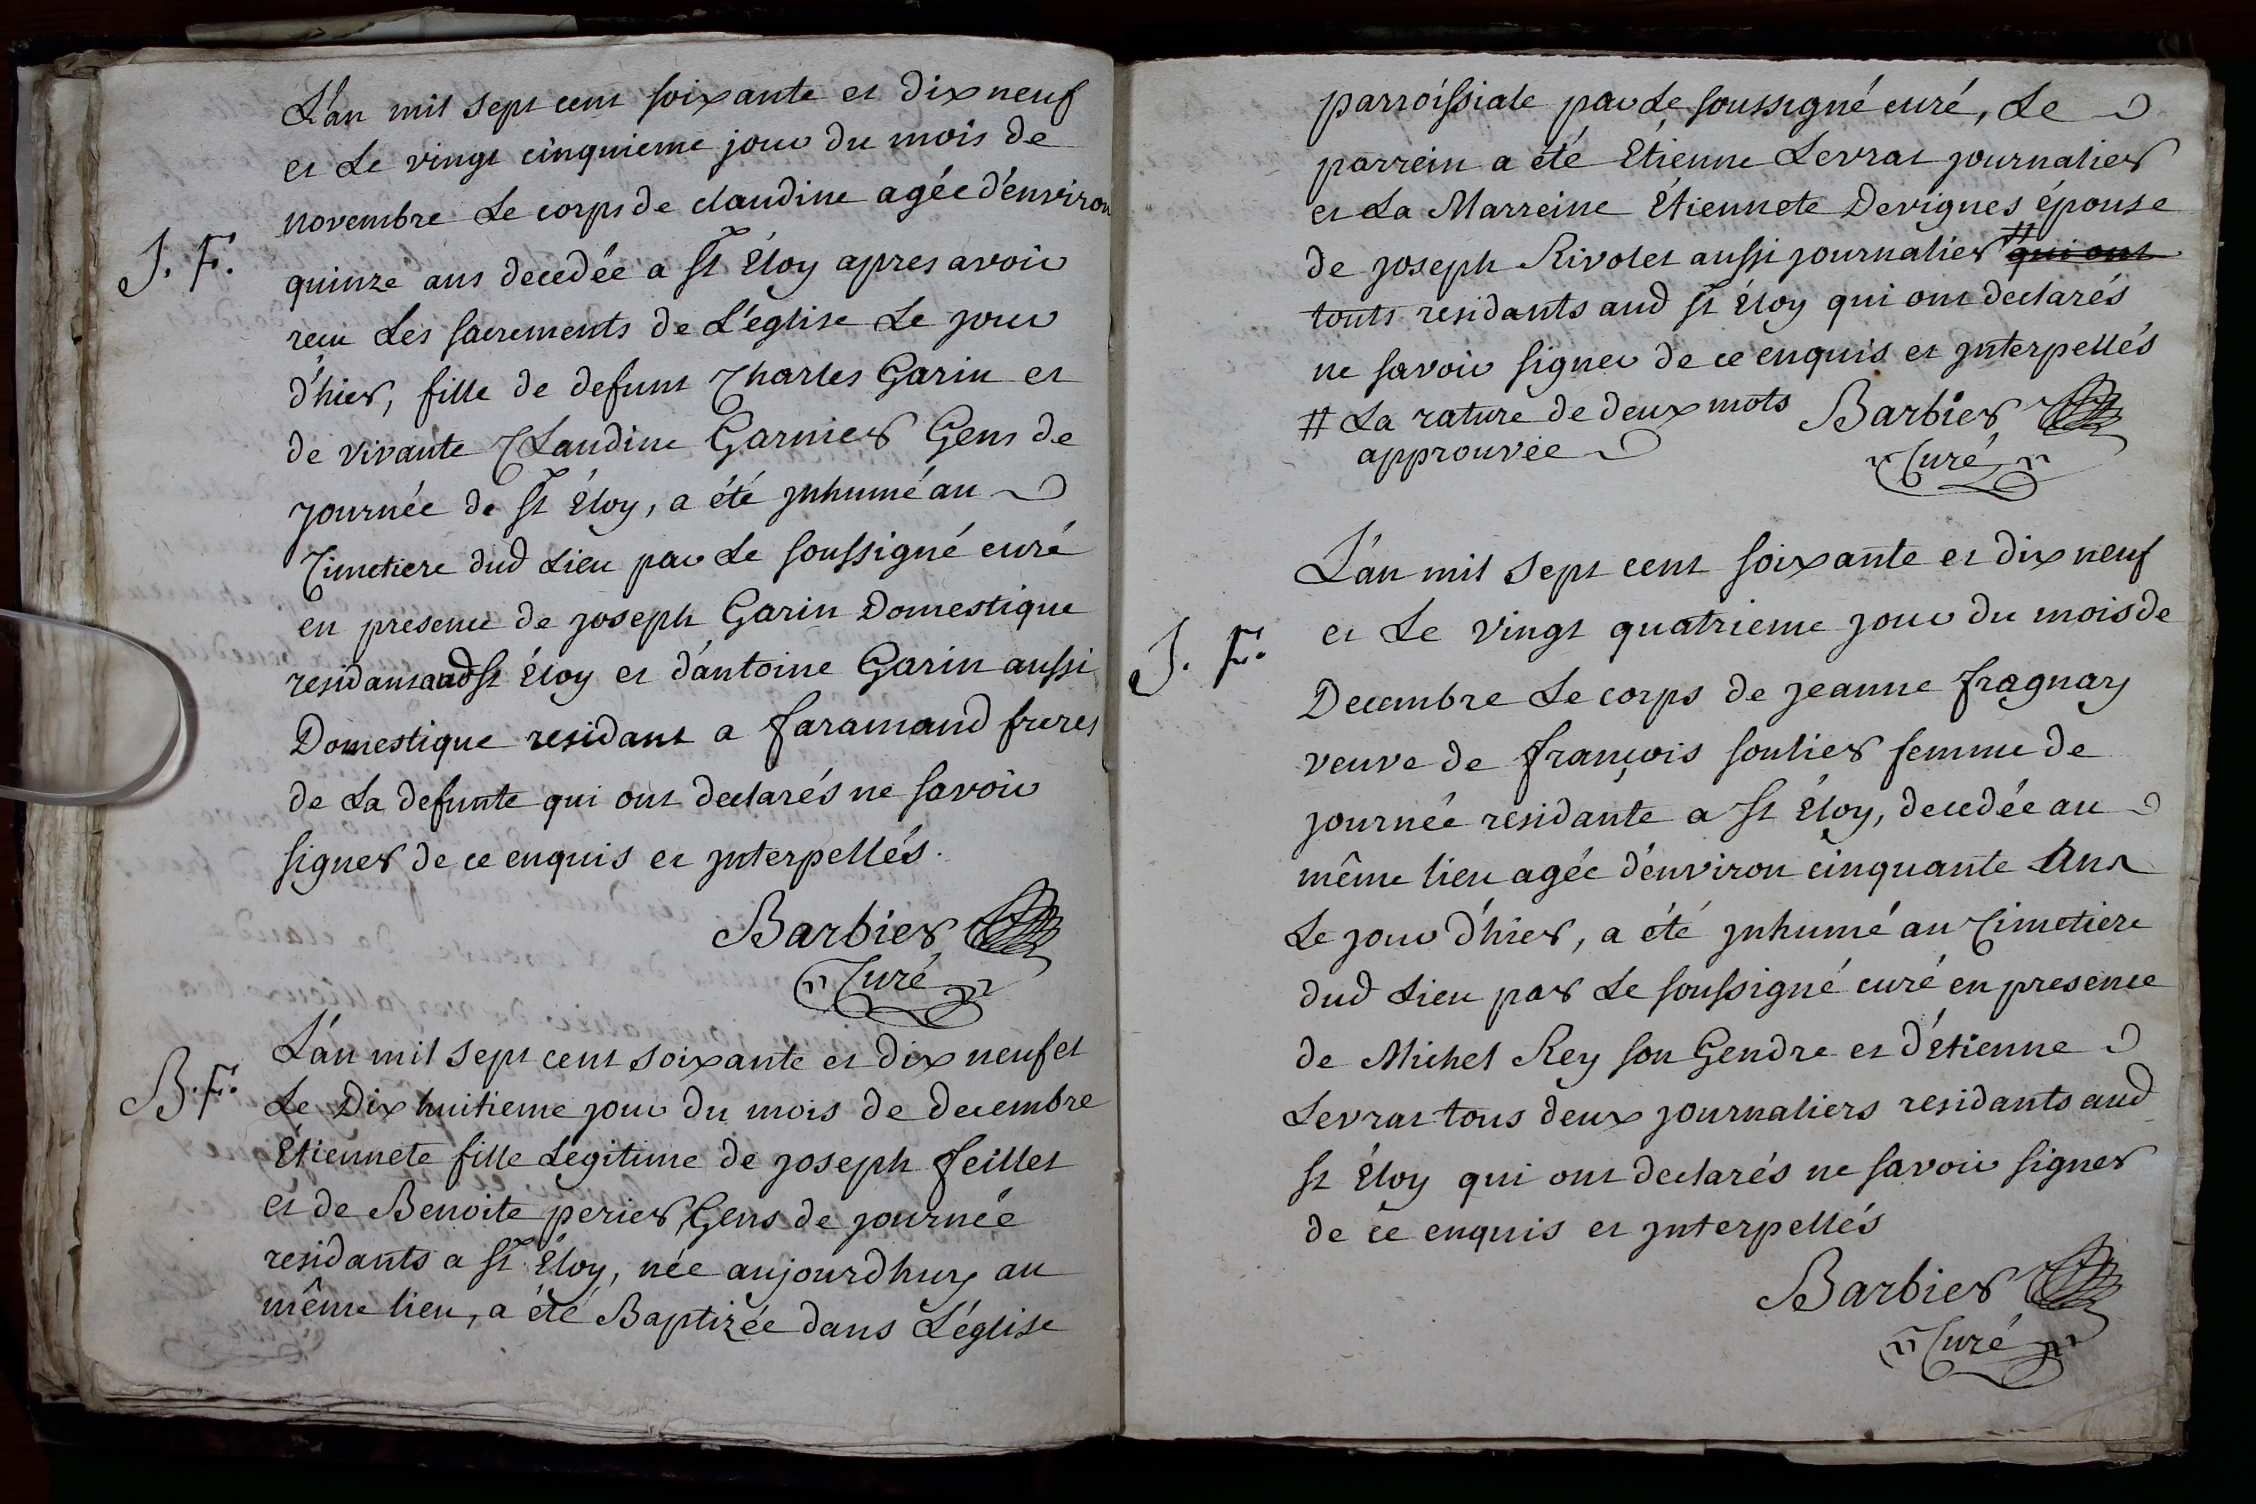 L'an mil sept cent soixante et dix neuf
et Le vingt cinquieme jour du mois de
novembre Le corps de claudine agée d'environ
J. F.
quinze ans decedée a St Éloy apres avoir
recu Les sacrements de L'église Le jour
d'hier, fille de defunt Charles Garin et
de vivante Claudine Garnier Gens de
journée de St Éloy, a été jnhumé au
Cimetiere dud Lieu par Le soussigné curé
en presence de joseph Garin Domestique
residant aud St Éloy et d'antoine Garin aussi
Domestique residant a faramand freres
de La defunte qui ont declarés ne savoir
signer de ce enquis et jnterpellés.
Barbier
Curé
L'an mil sept cent soixante et dix neuf et
B. F.
Le Dix huitieme jour du mois de decembre
Étiennete fille Légitime de joseph feillet
et de Benoite perier Gens de journée
residants a St Éloy, née aujourdhuy au
même lieu, a été Baptizée dans L'église
parroissiale par Le soussigné curé, Le
parrein a été Etienne Levrat journalier
et La Marreine Étiennete Devignes épouse
de joseph Rivolet aussi journalier # qui ont
touts residants aud St Éloy qui ont declarés
ne savoir signer de ce enquis et jnterpellés
# La rature de deux mots Barbier
approuvée Curé
L'an mil sept cent soixante et dix neuf
et Le vingt quatrieme jour du mois de
J. F.
Decembre Le corps de jeanne fragnay
veuve de françois soulier femme de
journée résidante a St Éloy, decedée au
même lieu agée d'environ cinquante Ans
Le jour d'hier, a été jnhumé au Cimetiere
dud Lieu par Le soussigné curé en presence
de Michel Rey son Gendre et d'étienne
Levrat tous deux journaliers residants aud
St Éloy qui ont declarés ne savoir signer
de ce enquis et jnterpellés
Barbier
Curé